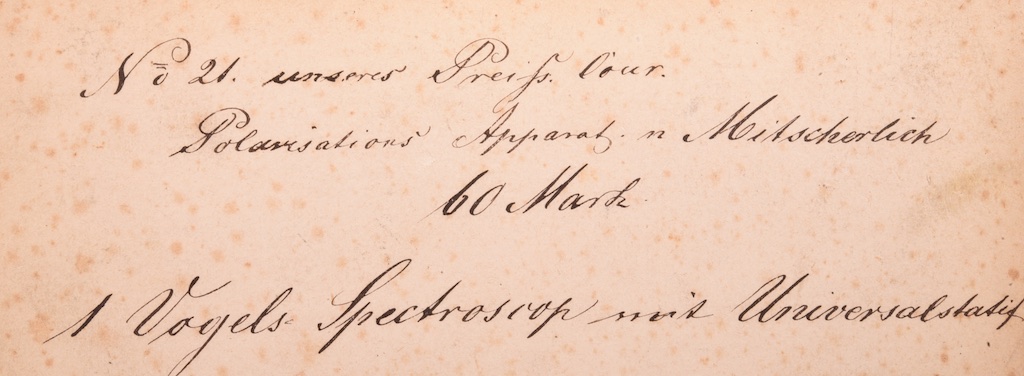 No 21. unseres Preiss. Cour.
Polarisations Apparat. n Mitscherlich
60 Mark
1 Vogels Spectroscop mit Universalstatif